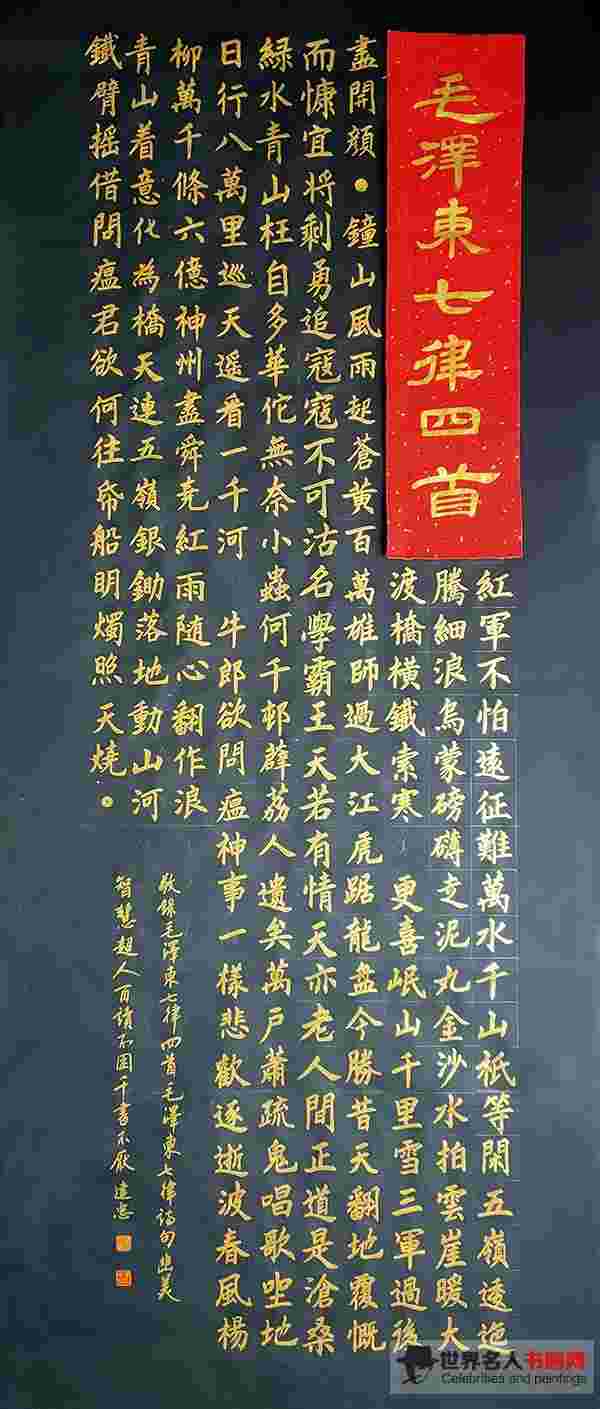 毛澤東七律四首
紅軍不怕遠征難萬水千山祇等閑五嶺逶迤
騰細浪烏蒙磅礴走泥丸金沙水拍雲崖暖大
渡橋橫鐵索寒 更喜岷山千里雪三軍過後
盡開顏●鐘山風雨起蒼黃百萬雄師過大江虎踞龍盘今勝昔天翻地覆慨
而慷宜將剩勇追寇寇不可沽名學霸王天若有情天亦老人間正道是滄桑
綠水青山枉自多華佗無奈小蟲何千邨薜荔人遺矣萬戶蕭疏鬼唱歌坐地
日行八萬里巡天遥看一千河 牛郎欲問瘟神事一樣悲歡逐逝波春風楊
柳萬千條六億神州盡舜堯紅雨随心翻作浪
青山着意化為橋天連五嶺銀鋤落地動山河
鐵臂摇借問瘟君欲何往帋船明燭照天燒●
敬錄毛澤東七律四首毛澤東七律詩句幽美
智慧超人百讀不困千書不厭 達忠
世界名人书画网
Celebrities and paintings